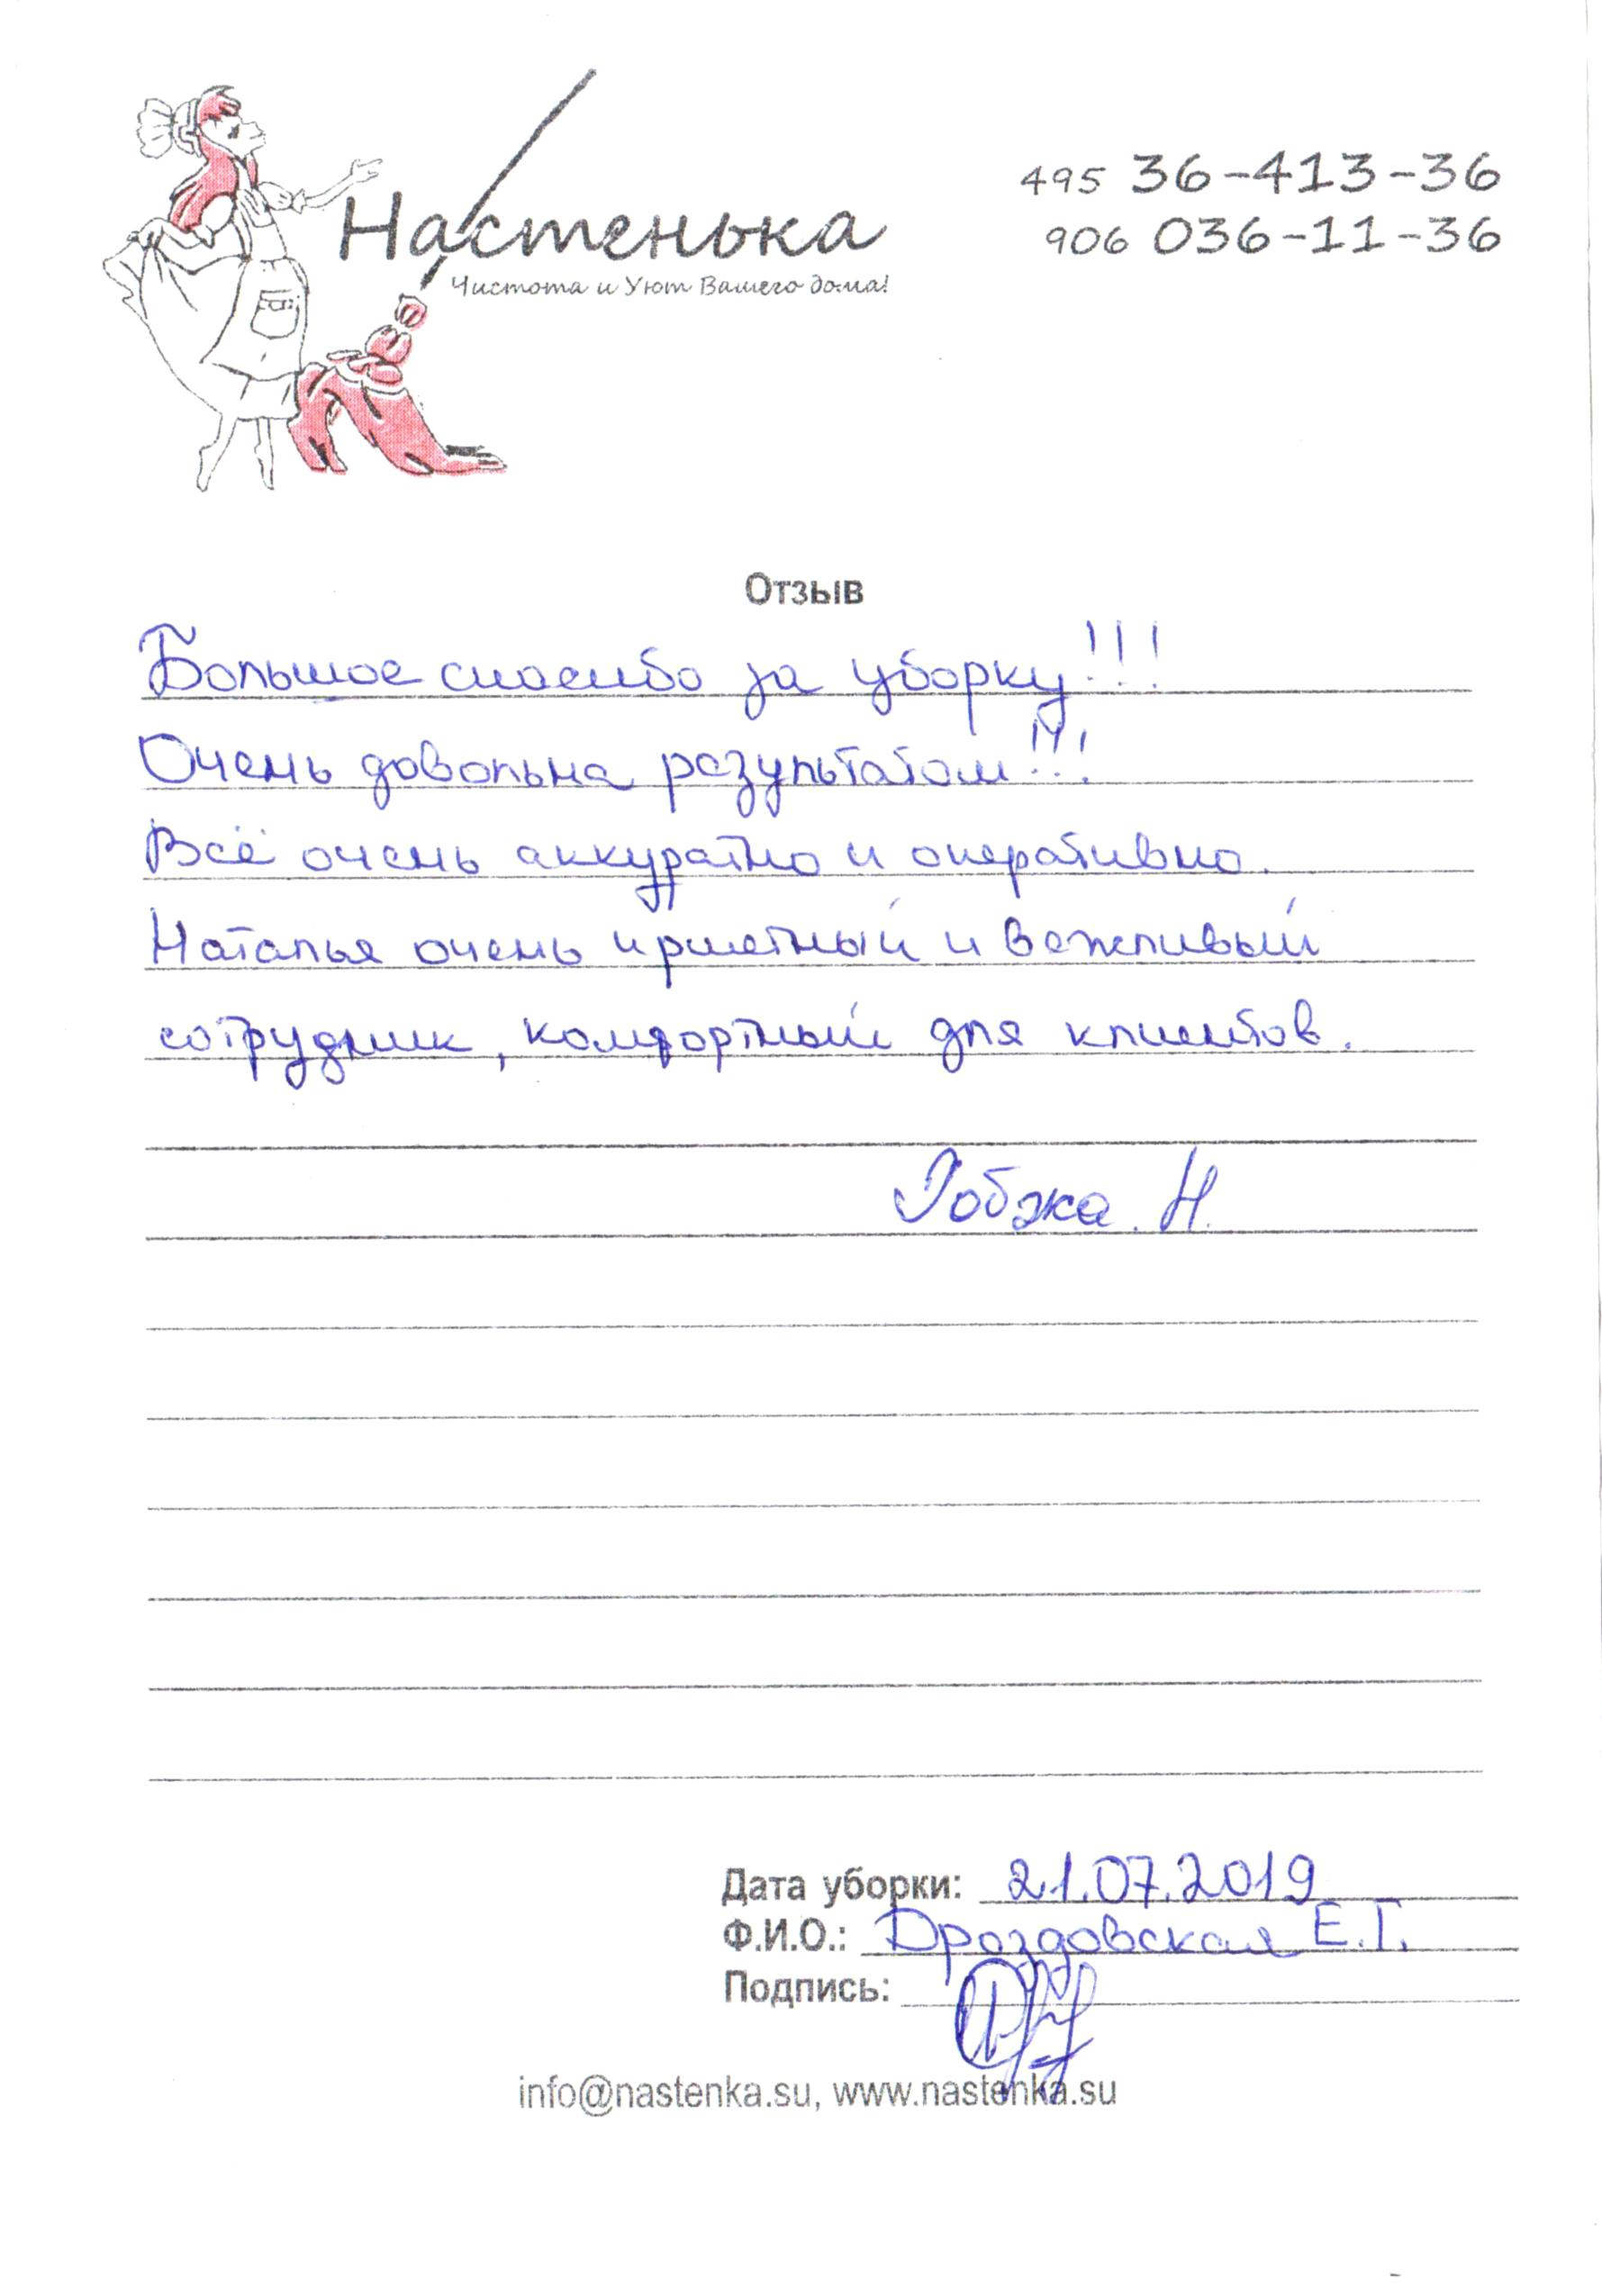 Настенька
Чистота и Уют Вашего дома!
495 36-413-36
906 036-11-36
Отзыв
Большое спасибо за уборку!!!
Очень довольна результатом!!!
Всё очень аккуратно и оперативно.
Наталья очень приятный и вежливый
сотрудник, комфортный для клиентов.
Гобжа. Н.
Дата уборки: 21.07.2019
Ф.И.О.: Дроздовская Е.Г.
Подпись:
info@nastenka.su, www.nastenka.su